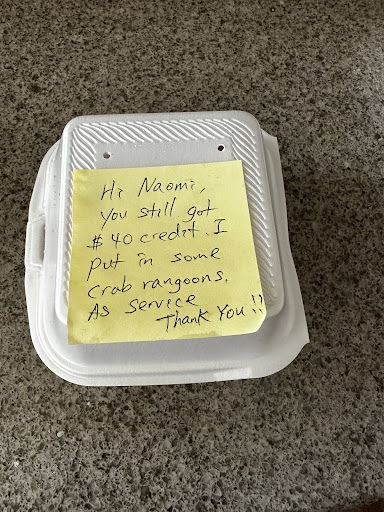 Hi Naomi,
You still got
$40 credit. I
put in some
crab rangoons.
As service
Thank You!!